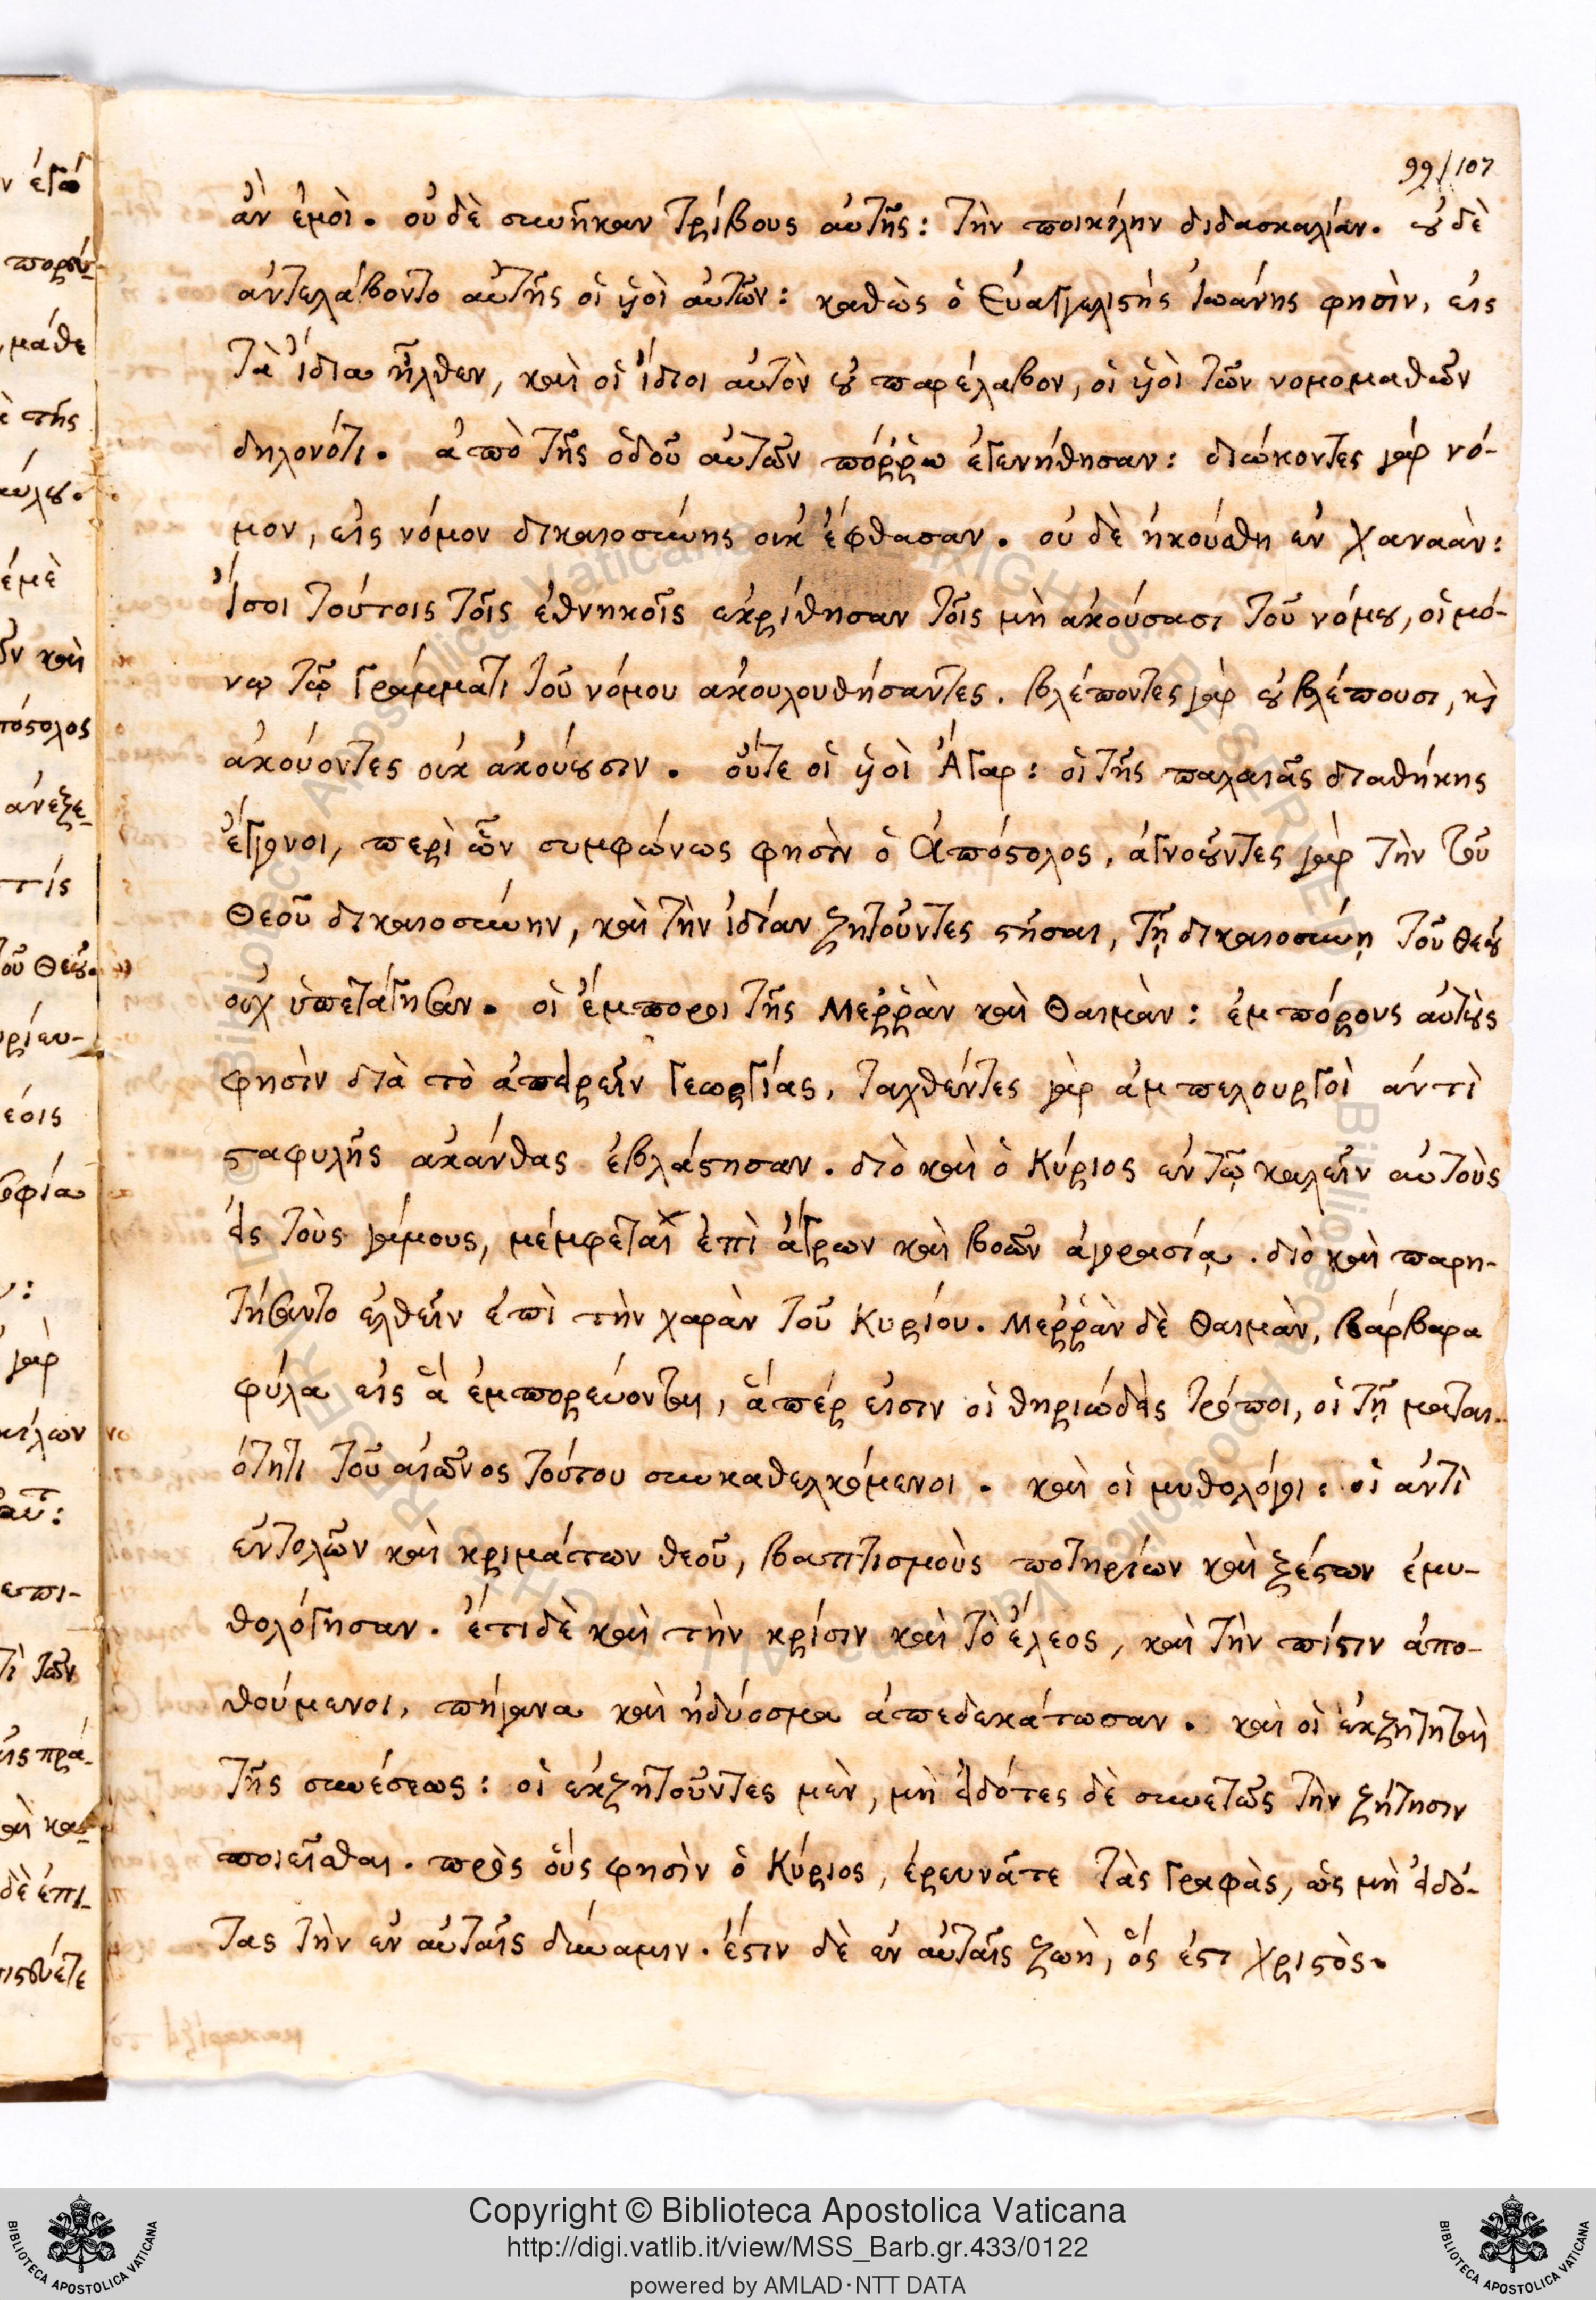 99/107
ἀν ἐμοὶ. οὐδὲ συνῆκαν τρίβους αὐτῆς: τὴν ποικίλην διδασκαλίαν. οὐδὲ
ἀντελάβοντο αὐτῆς οἱ ὑϊοὶ αὐτῶν: καθὼς ὁ Εὐαγγελιστὴς Ἰωάνης φησὶν, εἰς
τὰ ἴδια ἦλθεν, καὶ οἱ ἴδιοι αὐτὸν οὐ παρέλαβον, οἱ ὑϊοὶ τῶν νομομαθῶν
δηλονότι. ἀπὸ τῆς ὁδοῦ αὐτῶν πόῤῥω ἐγενήθησαν: διώκοντες γὰρ νό-
μον, εἰς νόμον δικαιοσύνης οὐκ ἔφθασαν. οὐδὲ ἠκούσθη ἐν Χαναὰν:
Ἴσοι τούτοις τοῖς ἐθνηκοῖς ἐκρίθησαν τοῖς μὴ ἀκούσασι τοῦ νόμου, οἱ μό-
νῳ τῷ γράμματι τοῦ νόμου ἀκουλουθήσαντες. βλέποντες γὰρ οὐ βλέπουσι, καὶ
ἀκούοντες οὐκ ἀκούουσιν. οὔτε οἱ ὑϊοὶ Ἄγαρ: οἱ τῆς παλαιᾶς διαθήκης
ἔγγονοι, περὶ ὧν συμφώνως φησὶν ὁ Ἀπόστολος, ἀγνοοῦντες γὰρ τὴν τοῦ
Θεοῦ δικαιοσύνην, καὶ τὴν ἰδίαν ζητοῦντες στῆσαι, τῇ δικαιοσύνῃ τοῦ θεοῦ
οὐχ ὑπετάγησαν. οἱ ἔμποροι τῆς Μεῤῥὰν καὶ Θαιμὰν: ἐμπόρους αὐτοὺς
φησὶν διὰ τὸ ἀπειρεῖν γεωργίας, ταχθέντες γὰρ ἀμπελουργοὶ ἀντὶ
σταφυλῆς ἀκάνθας ἐβλάστησαν. διὸ καὶ ὁ Κύριος ἐν τῷ καλεῖν αὐτοὺς
εἰς τοὺς γάμους, μέμφεται ἐπὶ ἄγρων καὶ βοῶν ἀγορασίᾳ. διὸ καὶ παρη-
τήσαντο ἐλθεῖν ἐπὶ τὴν χαρὰν τοῦ Κυρίου. Μεῤῥὰν δὲ Θαιμὰν, βάρβαρα
φύλα εἰς ἃ ἐμπορεύονται, ἅπέρ εἰσιν οἱ θηριώδεις τρόποι, οἱ τῇ μαται-
ότητι τοῦ αἰῶνος τούτου συνκαθελκόμενοι. καὶ οἱ μυθολόγοι: οἱ ἀντὶ
ἐντολῶν καὶ κριμάτων θεοῦ, βαπτισμοὺς ποτηρίων καὶ ξέστων ἐμυ-
θολόγησαν. ἔτι δὲ καὶ τὴν κρίσιν καὶ τὸ ἔλεος, καὶ τὴν πίστιν ἀπο-
θούμενοι, πήγανα καὶ ἡδύοσμα ἀπεδεκάτωσαν. καὶ οἱ ἐκζητηταὶ
τῆς συνέσεως: οἱ ἐκζητοῦντες μὲν, μὴ εἰδότες δὲ συνετῶς τὴν ζήτησιν
ποιεῖσθαι. πρὸς οὓς φησὶν ὁ Κύριος, ἐρευνᾶτε τὰς γραφὰς, ὡς μὴ εἰδό-
τας τὴν ἐν αὐταῖς δύναμιν. ἔστιν δὲ ἐν αὐταῖς ζωὴ, ὅς ἐστι χριστὸς.
Copyright © Biblioteca Apostolica Vaticana
http://digi.vatlib.it/view/MSS_Barb.gr.433/0122
powered by AMLAD·NTT DATA